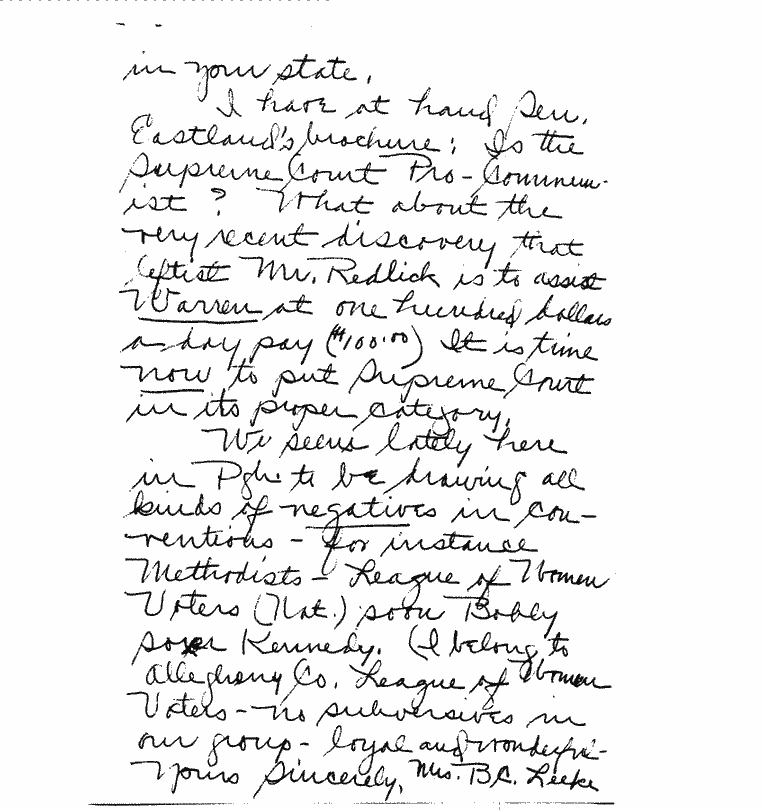 in your state.
I have at hand Sen.
Eastland's brochure: Is the
Supreme Court Pro-Commun-
ist? What about the
very recent discovery that
leftist Mr. Redlick is to assist
Warren at one hundred dollars
a day pay ($100.00) It is time
now to put Supreme Court
in its proper category.
We seem lately here
in Pgh. to be drawing all
kinds of negatives in con-
ventions - for instance
Methodists - League of Women
Voters (Nat.) soon Bobby
soxer Kennedy. (I belong to
Allegheny Co. League of Women
Voters - no subversives in
our group - loyal and wonderful-
Yours Sincerely, Mrs. B.C.